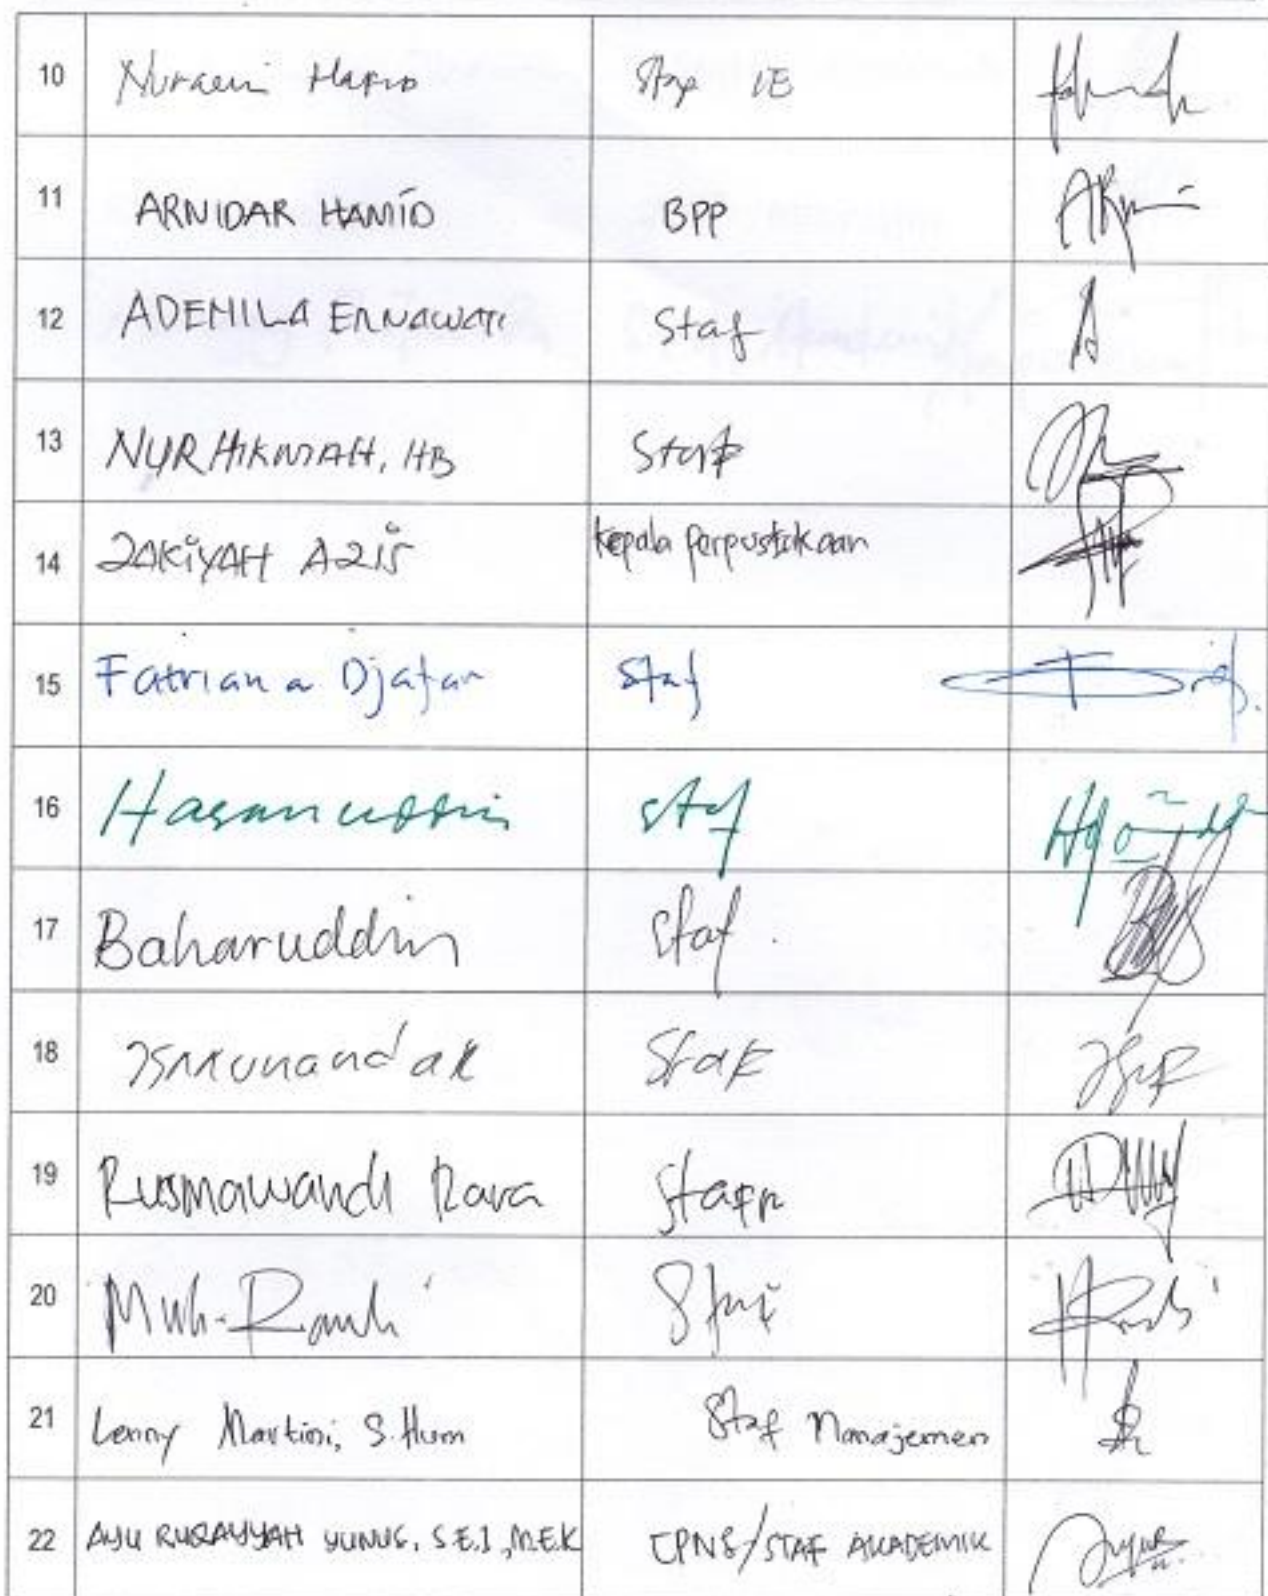 10 Nuraeni Hafid Staf IE
11 ARNIDAR HAMID BPP
12 ADEMILA ERNAWATI Staf
13 NUR HIKMAH, HB Staf
14 ZAKIYAH AZIS Kepala Perpustakaan
15 Fatriana Djafar Staf
16 Hasanuddin staf
17 Baharuddin staf
18 Staf
19 Rusmawandi Rara Staff
20 Muh. Ramli Staf
21 Lenny Martini, S.Hum Staf Manajemen
22 AYU RUQAYYAH YUNUS, S.E.I, M.E.K CPNS/STAF AKADEMIK